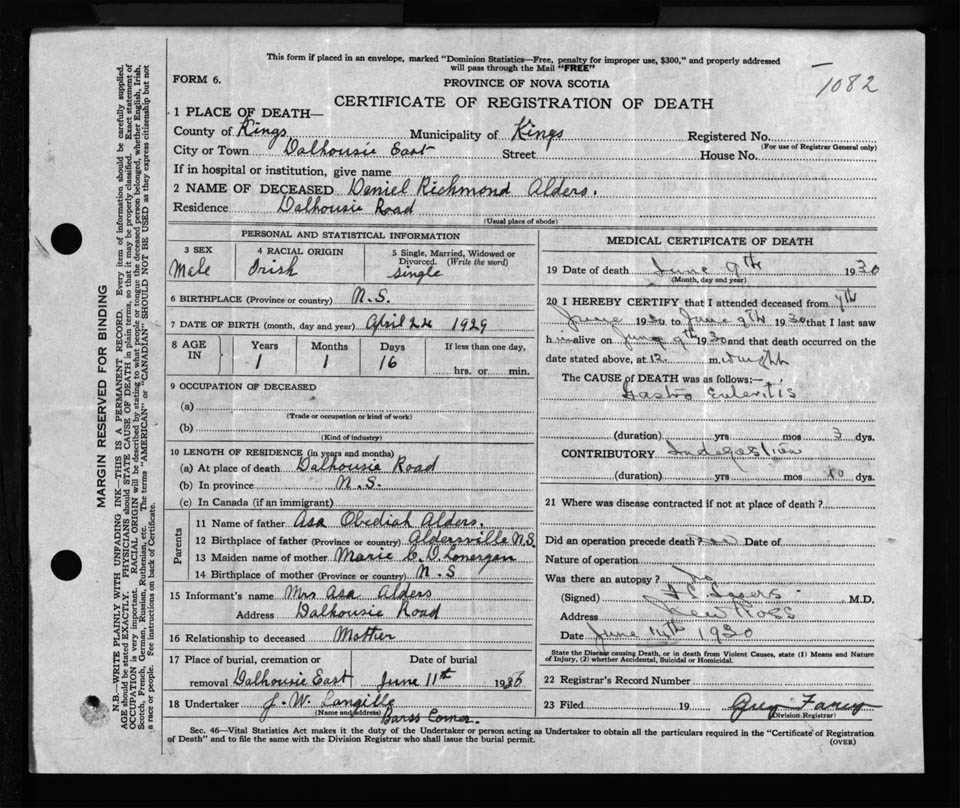 This form if placed in an envelope, marked "Dominion Statistics—Free, penalty for improper use, $300," and properly addressed
will pass through the Mail "FREE"
1082
FORM 6.
PROVINCE OF NOVA SCOTIA
CERTIFICATE OF REGISTRATION OF DEATH
1 PLACE OF DEATH—
County of Kings Municipality of Kings Registered No.
(For use of Registrar General only)
City or Town Dalhousie East Street House No.
If in hospital or institution, give name
2 NAME OF DECEASED Deniel Richmond Alders.
Residence Dalhousie Road
(Usual place of abode)
PERSONAL AND STATISTICAL INFORMATION
3 SEX
Male
4 RACIAL ORIGIN
Irish
5 Single, Married, Widowed or
Divorced. (Write the word)
single
6 BIRTHPLACE (Province or country) N.S.
7 DATE OF BIRTH (month, day and year) April 24 1929
8 AGE IN
Years Months Days If less than one day,
1 1 16 hrs. or min.
9 OCCUPATION OF DECEASED
(a)
(Trade or occupation or kind of work)
(b)
(Kind of industry)
10 LENGTH OF RESIDENCE (in years and months)
(a) At place of death Dalhousie Road
(b) In province N.S.
(c) In Canada (if an immigrant)
Parents
11 Name of father Asa Obediah Alders.
12 Birthplace of father (Province or country) Aldersville N.S.
13 Maiden name of mother Marie C. O. Lonergan
14 Birthplace of mother (Province or country) N.S
15 Informant's name Mrs Asa Alders
Address Dalhousie Road
16 Relationship to deceased Mother
17 Place of burial, cremation or Date of burial
removal Dalhousie East June 11th 19
18 Undertaker J. W. Langille
(Name and address) Barss Corner.
MEDICAL CERTIFICATE OF DEATH
19 Date of death June 9th 1930
(Month, day and year)
20 I HEREBY CERTIFY that I attended deceased from 9th
June 1930 to June 9th 1930 that I last saw
him alive on June 9th 1930 and that death occurred on the
date stated above, at 12. m.
The CAUSE of DEATH was as follows:—
Gastro Enteritis
(duration) yrs mos 3 dys.
CONTRIBUTORY Indegestion
(duration) yrs mos 10 dys.
21 Where was disease contracted if not at place of death?
Did an operation precede death? no Date of
Nature of operation
Was there an autopsy? no
(Signed) M.D.
Address New Ross
Date June 14th 1930
State the Disease causing Death, or in death from Violent Causes, state (1) Means and Nature
of Injury, (2) whether Accidental, Suicidal or Homicidal.
22 Registrar's Record Number
23 Filed 19 Guy Fancy
(Division Registrar)
Sec. 46—Vital Statistics Act makes it the duty of the Undertaker or person acting as Undertaker to obtain all the particulars required in the "Certificate of Registration
of Death" and to file the same with the Division Registrar who shall issue the burial permit.
(OVER)
MARGIN RESERVED FOR BINDING
N.B.—WRITE PLAINLY WITH UNFADING INK—THIS IS A PERMANENT RECORD. Every item of information should be carefully supplied.
AGE should be stated EXACTLY. PHYSICIANS should STATE CAUSE OF DEATH in plain terms, so that it may be properly classified. Exact statement of
OCCUPATION is very important. RACIAL ORIGIN will be described by stating to what people or tongue the deceased person belonged, whether English, Irish,
Scotch, French, German, Russian, Ruthenian, etc. The terms "AMERICAN" or "CANADIAN" SHOULD NOT BE USED as they express citizenship but not
a race or people. Fee instructions on back of Certificate.